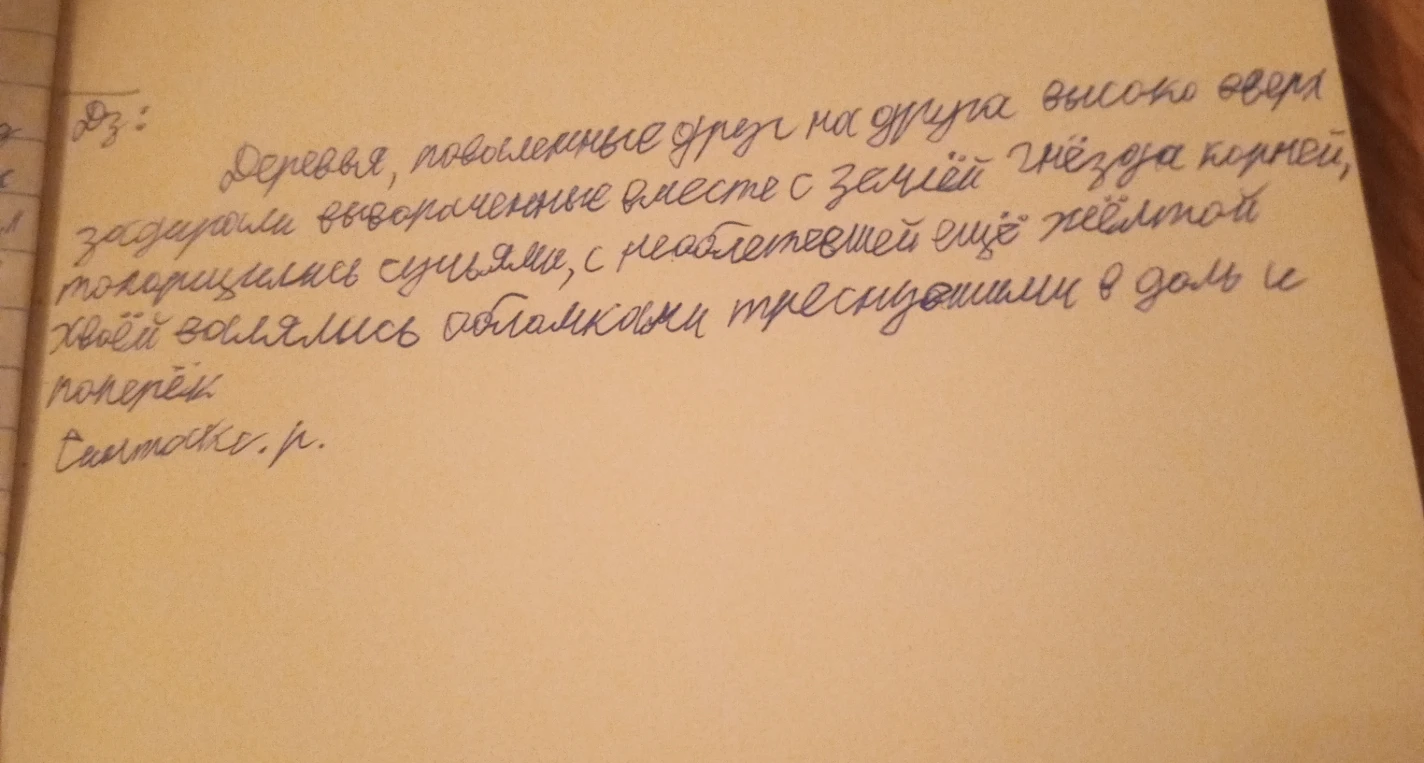 Дз:
Деревья, поваленные друг на друга высоко вверх
задирали вывороченные вместе с землёй гнёзда корней,
топорщились сучьями, с необлетевшей ещё жёлтой
хвоёй валялись обломками треснувшими в доль и
поперёк
Синтакс. р.